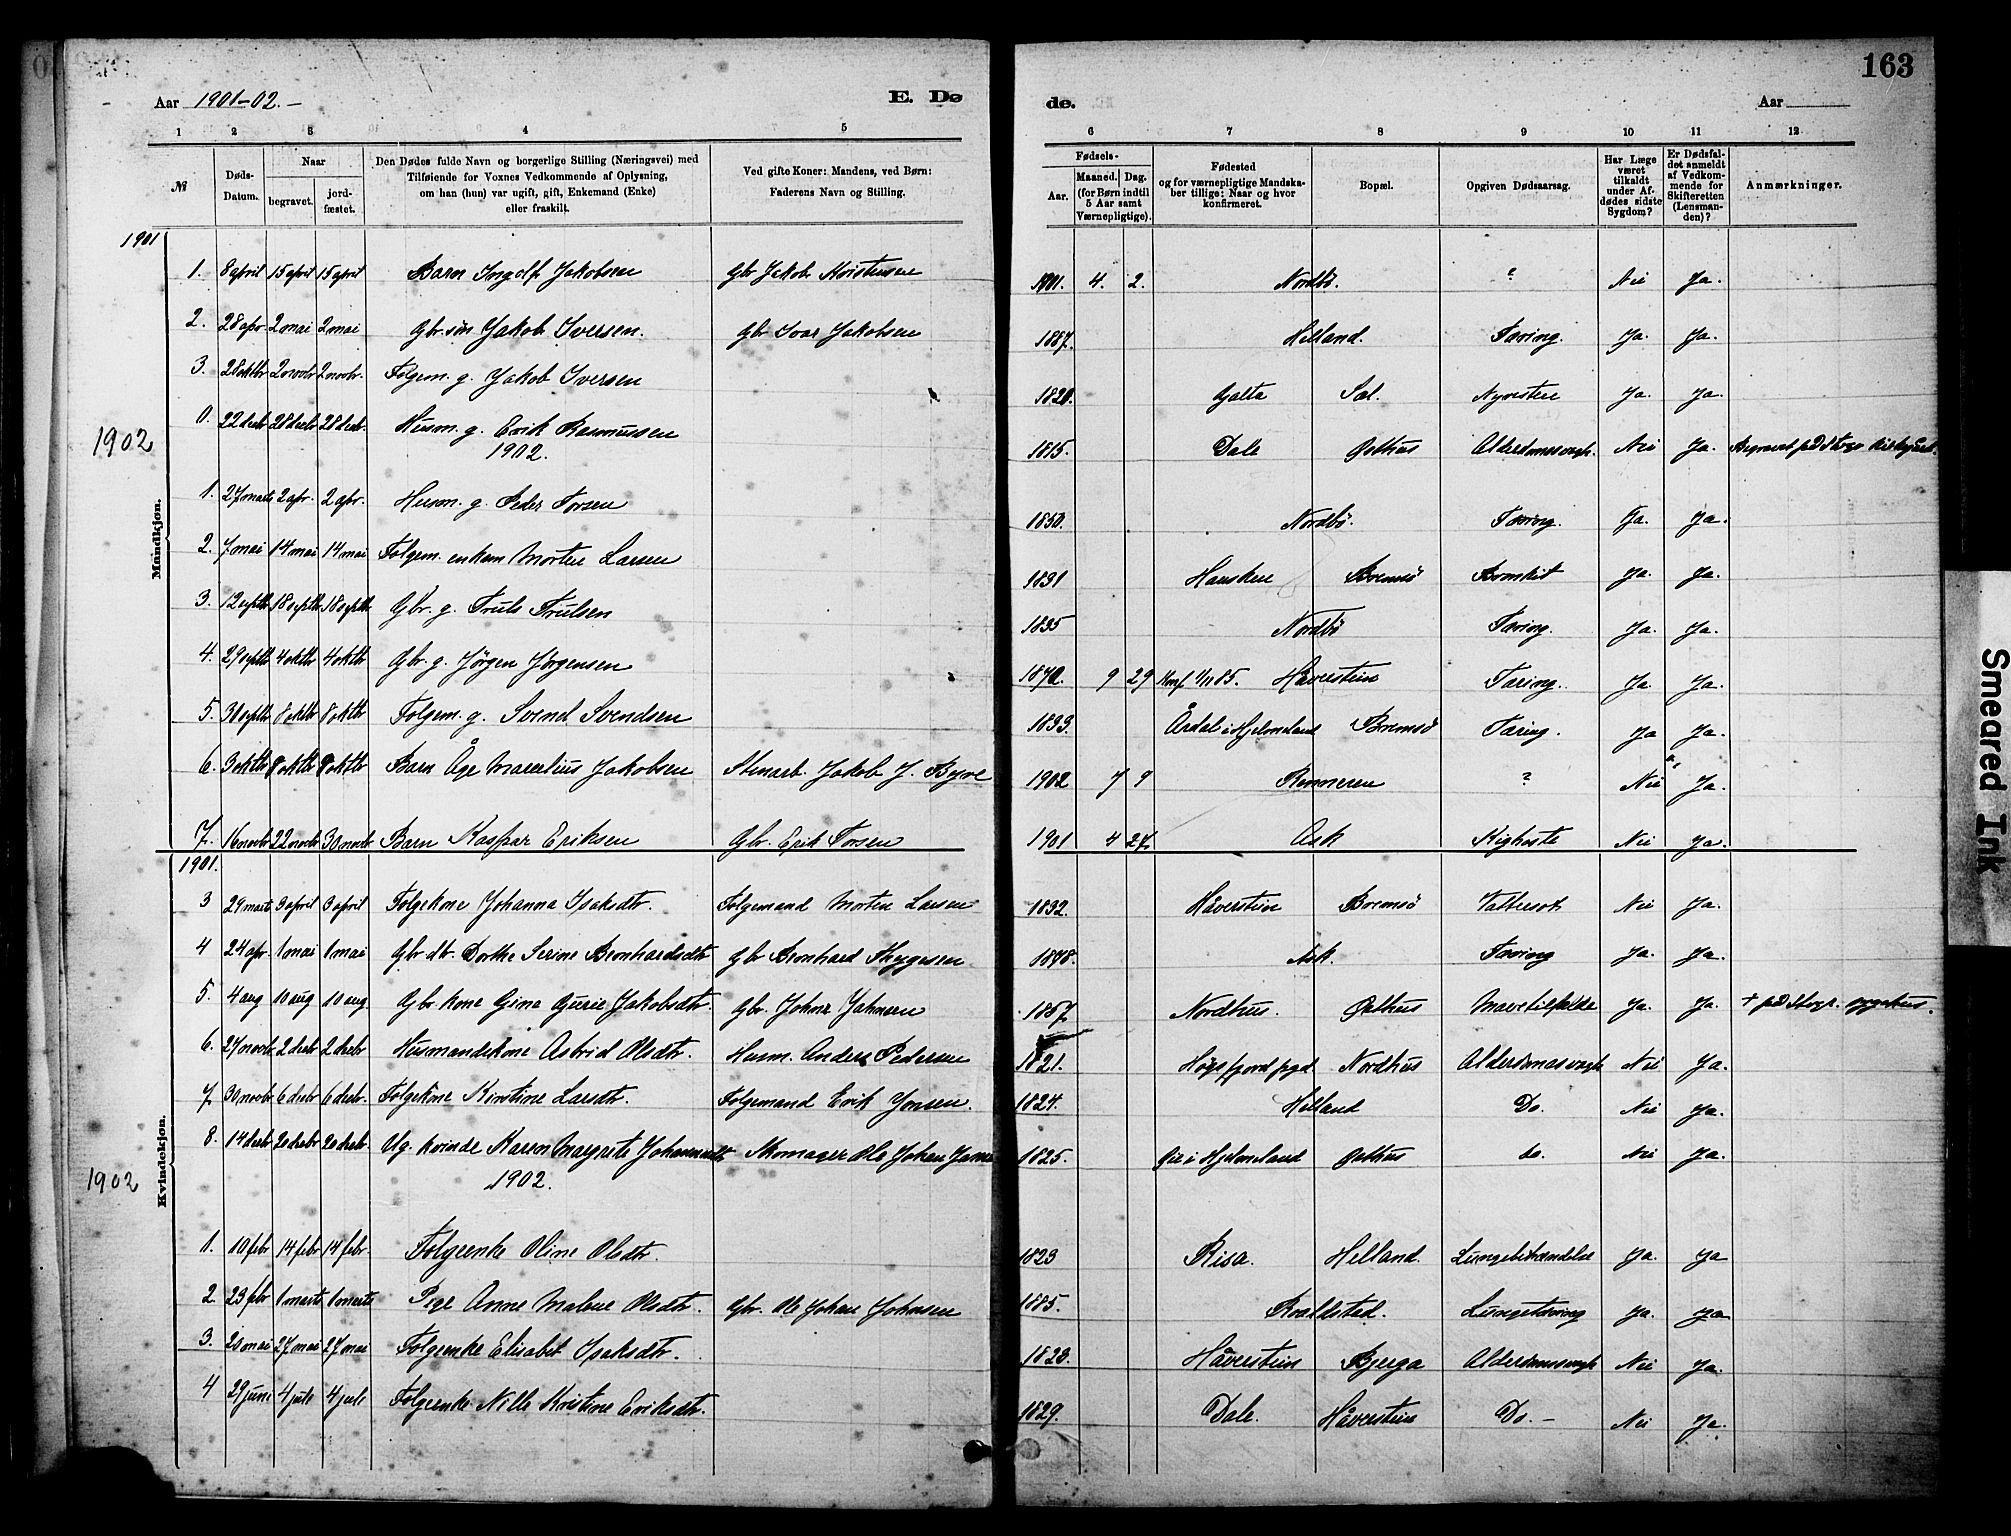 163
Aar 1901-02.-
E. Dø
de.
Aar
1 2 3 4 5
6 7 8 9 10 11 12
№
Døds-Datum.
Naar
begravet.
jord-fæstet.
Den Dødes fulde Navn og borgerlige Stilling (Næringsvei) med
Tilføiende for Voxnes Vedkommende af Oplysning,
om han (hun) var ugift, gift, Enkemand (Enke)
eller fraskilt.
Ved gifte Koner: Mandens, ved Børn:
Faderens Navn og Stilling.
Fødsels-
Aar.
Maaned. Dag.
(for Børn indtil
5 Aar samt
Værnepligtige).
Fødested
og for værnepligtige Mandska-
ber tillige: Naar og hvor
konfirmeret.
Bopæl.
Opgiven Dødsaarsag.
Har Læge
været
tilkaldt
under Af-
dødes sidste
Sygdom?
Er Dødsfal-
det anmeldt
af Vedkom-
mende for
Skifteretten
(Lensman-
den)?
Anmærkninger.
Mandkjøn.
1901
1. 8 april 15 april 15 april Barn Ingolf Jakobsen Gbr Jakob Kristensen 1901. 4. 2. Nordbø. ? Nei Ja.
2. 28 apr 2 mai 2 mai Gbr søn Jakob Iversen. Gbr Ivar Jakobsen 1887. Helland. Tæring. Ja. Ja.
3. 28 oktbr 2 novbr 2 novbr. Folgem. g. Jakob Iversen 1820. Galta Sæl. Nyresten Ja. Ja.
0. 22 decbr 28 decbr 28 decbr. Husm. g. Erik Rasmussen 1815. Dale Østhus Alderdomssvagh. Nei Ja.
1902
1902.
1. 27 marts 2 apr. 2 apr. Husm. g. Peder Torsen 1850. Nordbø. Tæring. Ja. Ja.
2. 7 mai 14 mai 14 mai Folgem. enkem Morten Larsen 1831 Hausken Bremsø Bronkit Ja. Ja.
3. 12 septbr 18 septbr 18 septbr. Gbr. g. Truls Trulsen 1835 Nordbø Tæring. Ja. Ja.
4. 29 septbr 4 oktbr 4 oktbr Gbr. g. Jørgen Jørgensen 1870. 9 29 Konf 1/11 85. Håverstein Tæring. Ja Ja.
5. 30 septbr 8 oktbr 8 oktbr Folgem. g. Svend Svendsen 1833. Årdal i Hjelmeland Bremsø Tæring. Ja Ja.
6. 3 oktbr 8 oktbr 8 oktbr Barn Åge Marcelius Jakobsen Stenarb. Jakob J. Byre 1902 7 9 Rennesøen ? Nei Ja.
7. 16 novbr 22 novbr 30 novbr Barn Kaspar Eriksen Gbr. Erik Torsen 1901 4 27 Ask Kighoste Nei Ja.
Kvindekjøn.
1901.
3 29 marts 3 april 3 april Folgekone Johanna Isaksdtr. Folgemand Morten Larsen 1832. Håverstein Bremsø Vattersot Nei Ja.
4 24 apr. 1 mai 1 mai Gbr dtr. Dorthe Serine Bernhardsdtr Gbr Bernhard Thygesen 1878. Ask. Tæring Ja. Ja.
5. 4 aug 10 aug 10 aug. Gbr kone Gina Gurie Jakobsdtr. Gbr. Johns Johnsen 1857. Nordhus. Østhus Mavetilfælde Ja. Ja. + på Stvgr. sygehus.
6. 27 novbr 2 decbr 2 decbr Husmandskone Astrid Olsdtr. Husm. Anders Pedersen 1821. Høgsfjord pgd Nordhus Alderdomssvagh Nei Ja.
7 30 novbr 6 decbr 6 decbr. Folgekone Kirstine Larsdtr. Folgemand Erik Jonsen. 1824. Helland Do. Nei Ja.
8. 14 decbr 20 decbr 20 decbr. Ug. kvinde Karen Margrete Johannesdtr Skomager Ole Johan 1825. i Hjelmeland Østhus do. Nei Ja.
1902
1902.
1. 10 febr 14 febr 14 febr. Folgeenke Oline Olsdtr. 1823 Risa. Helland. Lungebetændelse Ja. Ja
2 23 febr 1 marts 1 marts Pige Anne Malene Olsdtr. Gbr. Ole Johan Johnsen 1885. Lungetæring Ja. Ja
3. 20 mai 27 mai 27 mai Folgeenke Elisabet Isaksdtr. 1823. Håverstein Bjerga Alderdomssvagh Nei Ja.
4 29 juni 4 juli 4 juli Folgeenke Nille Kristine Eriksdtr. 1829. Dale. Håverstein Do. - Nei Ja.
Smeared Ink